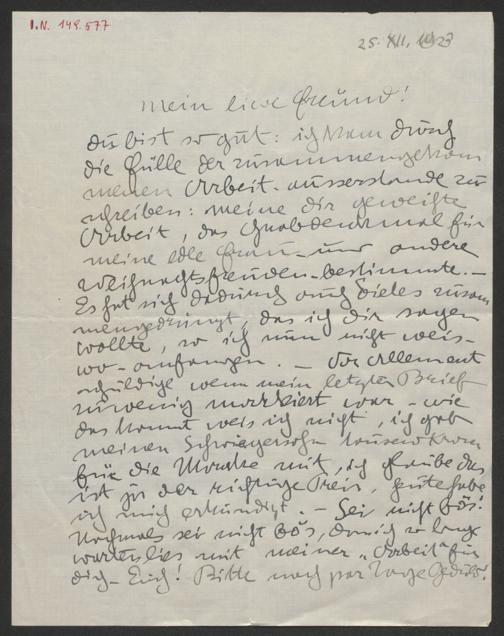 I.N. 149.577
25. XII. 1923
Mein lieber Freund!
Du bist so gut: ich kam durch
die Fülle der zusammengekom
menen Arbeit ausserstande zu
schreiben: meine dir geweihte
Arbeit, das Grabdenkmal für
meine edle Frau - und andere
Weihnachtsfreuden-bestimmte. -
Es hat sich dadurch auch vieles zusam
mengedrängt, das ich dir sagen
wollte, so ich nun nicht weis-
wo-anfangen. - Vor allem ent
schuldige wenn mein letzter Brief
zuwenig markiert war - wie
das kommt weis ich nicht, ich gab
meinen Schwiegersohn tausend Kronen
für die Marke mit, ich glaube das
ist ja der richtige Preis, heute habe
ich mich erkundigt. - Sei nicht bös!
Nochmals sei nicht bös, das ich so lang
warten lies mit meiner "Arbeit" für
dich - Euch! Bitte noch par Tage Geduld!